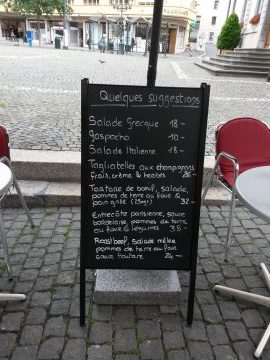 Quelques suggestions
Salade Grecque 18.-
gaspacho 10.-
Salade Italienne 18.-
Tagliatelles aux champignons
frais, crème & herbes 26.-
Tartare de bœuf, salade,
pommes de terre au four &
pain grillé (250gr) 32.-
Entrecôte parisienne, sauce
bordelaise, pommes de terre
au four & légumes 35.-
Roastbeef, Salade mêlée
pommes de terre au four
sauce tartare 24.-